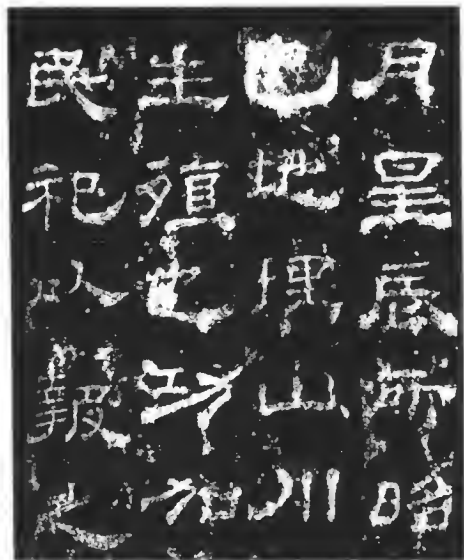 月星辰所昭
也地理山川
生殖也功加
民祀以報之